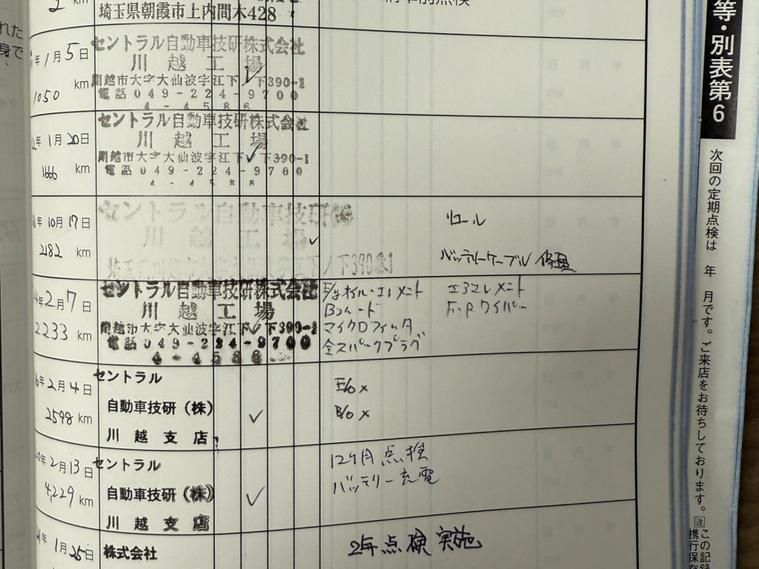 埼玉県朝霞市上内間木428
年1月5日
1050 km
セントラル自動車技研株式会社
川越工場
川越市大字大仙波字江下ノ下390-1
電話 049-224-9700
4-4586
年1月20日
1666 km
セントラル自動車技研株式会社
川越工場
川越市大字大仙波字江下ノ下390-1
電話 049-224-9700
4-4586
年10月17日
2182 km
セントラル自動車技研
川越工場
ノ下390-1
リコール
バッテリーケーブル 修理
年2月7日
2233 km
セントラル自動車技研株式会社
川越工場
川越市大字大仙波字江下ノ下390-1
電話 049-224-9700
4-4586
オイル・エレメント
マイクロフィルター
全スパークプラグ
エアエレメント
F・Rワイパー
年2月4日
2598 km
セントラル
自動車技研(株)
川越支店
年2月13日
4,229 km
セントラル
自動車技研(株)
川越支店
12ヶ月点検
バッテリー充電
年1月25日
株式会社
2年点検実施
等・別表第6
次回の定期点検は 年 月です。ご来店をお待ちしております。
注
この記録
携行保存